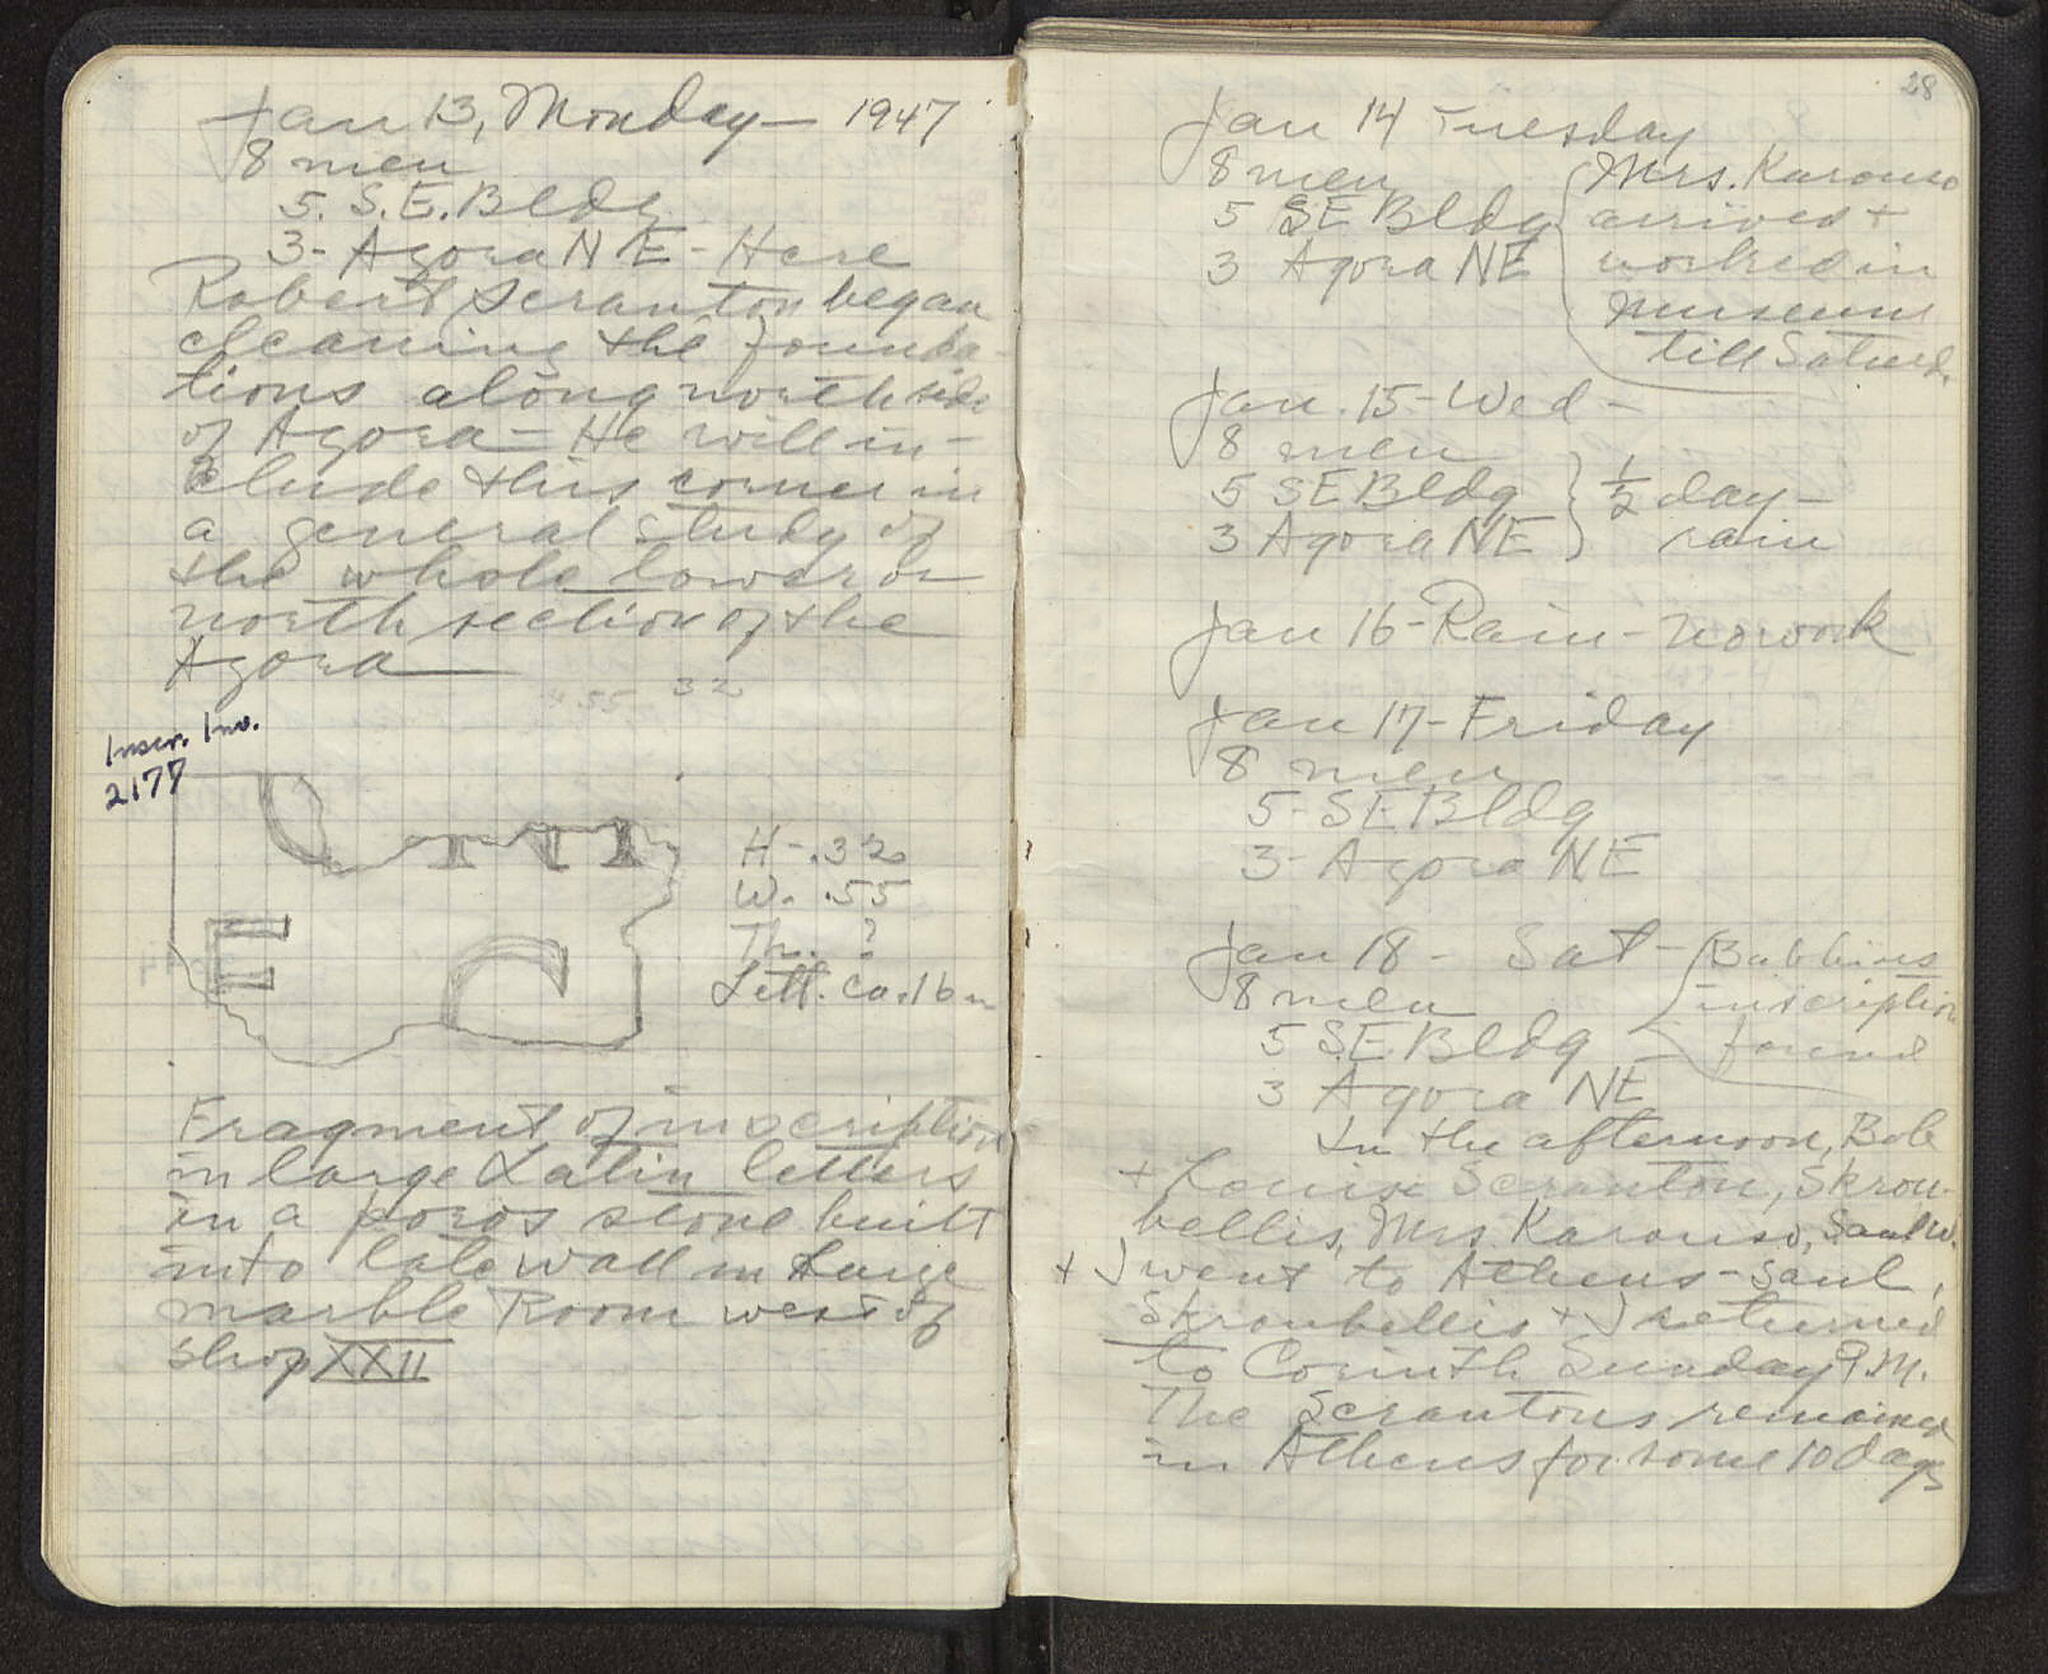 Jan 13, Monday — 1947
8 men
5. S.E. Bldg
3 - Agora NE - Here
Robert Scranton began
cleaning the founda-
tions along north side
of Agora — He will in-
clude this corner in
a general study of
the whole lower or
north section of the
Agora
.55 32
Inscr. Inv.
2177
E C
H - .32
W. .55
Th. ?
Lett. ca .16 m
Fragment of inscription
in large Latin letters
in a poros stone built
into late wall in Large
marble Room west of
Shop XXII
28
Jan 14 Tuesday
8 men
5 SE Bldg
3 Agora NE
Mrs. Karouso
arrived +
worked in
museum
till Saturd.
Jan. 15 - Wed -
8 men
5 SE Bldg
3 Agora NE
1/2 day -
rain
Jan 16 - Rain - No work
Jan 17 - Friday
8 men
5 - SE Bldg
3 - Agora NE
Jan 18 - Sat -
8 men
5 S.E. Bldg
3 Agora NE
Babbius
inscription
found
In the afternoon, Bob
+ Louise Scranton, Skrou-
bellis, Mrs Karouso, Saul W.
+ I went to Athens - Saul,
Skroubellis + I returned
to Corinth Sunday P.M.
The Scrantons remained
in Athens for some 10 days